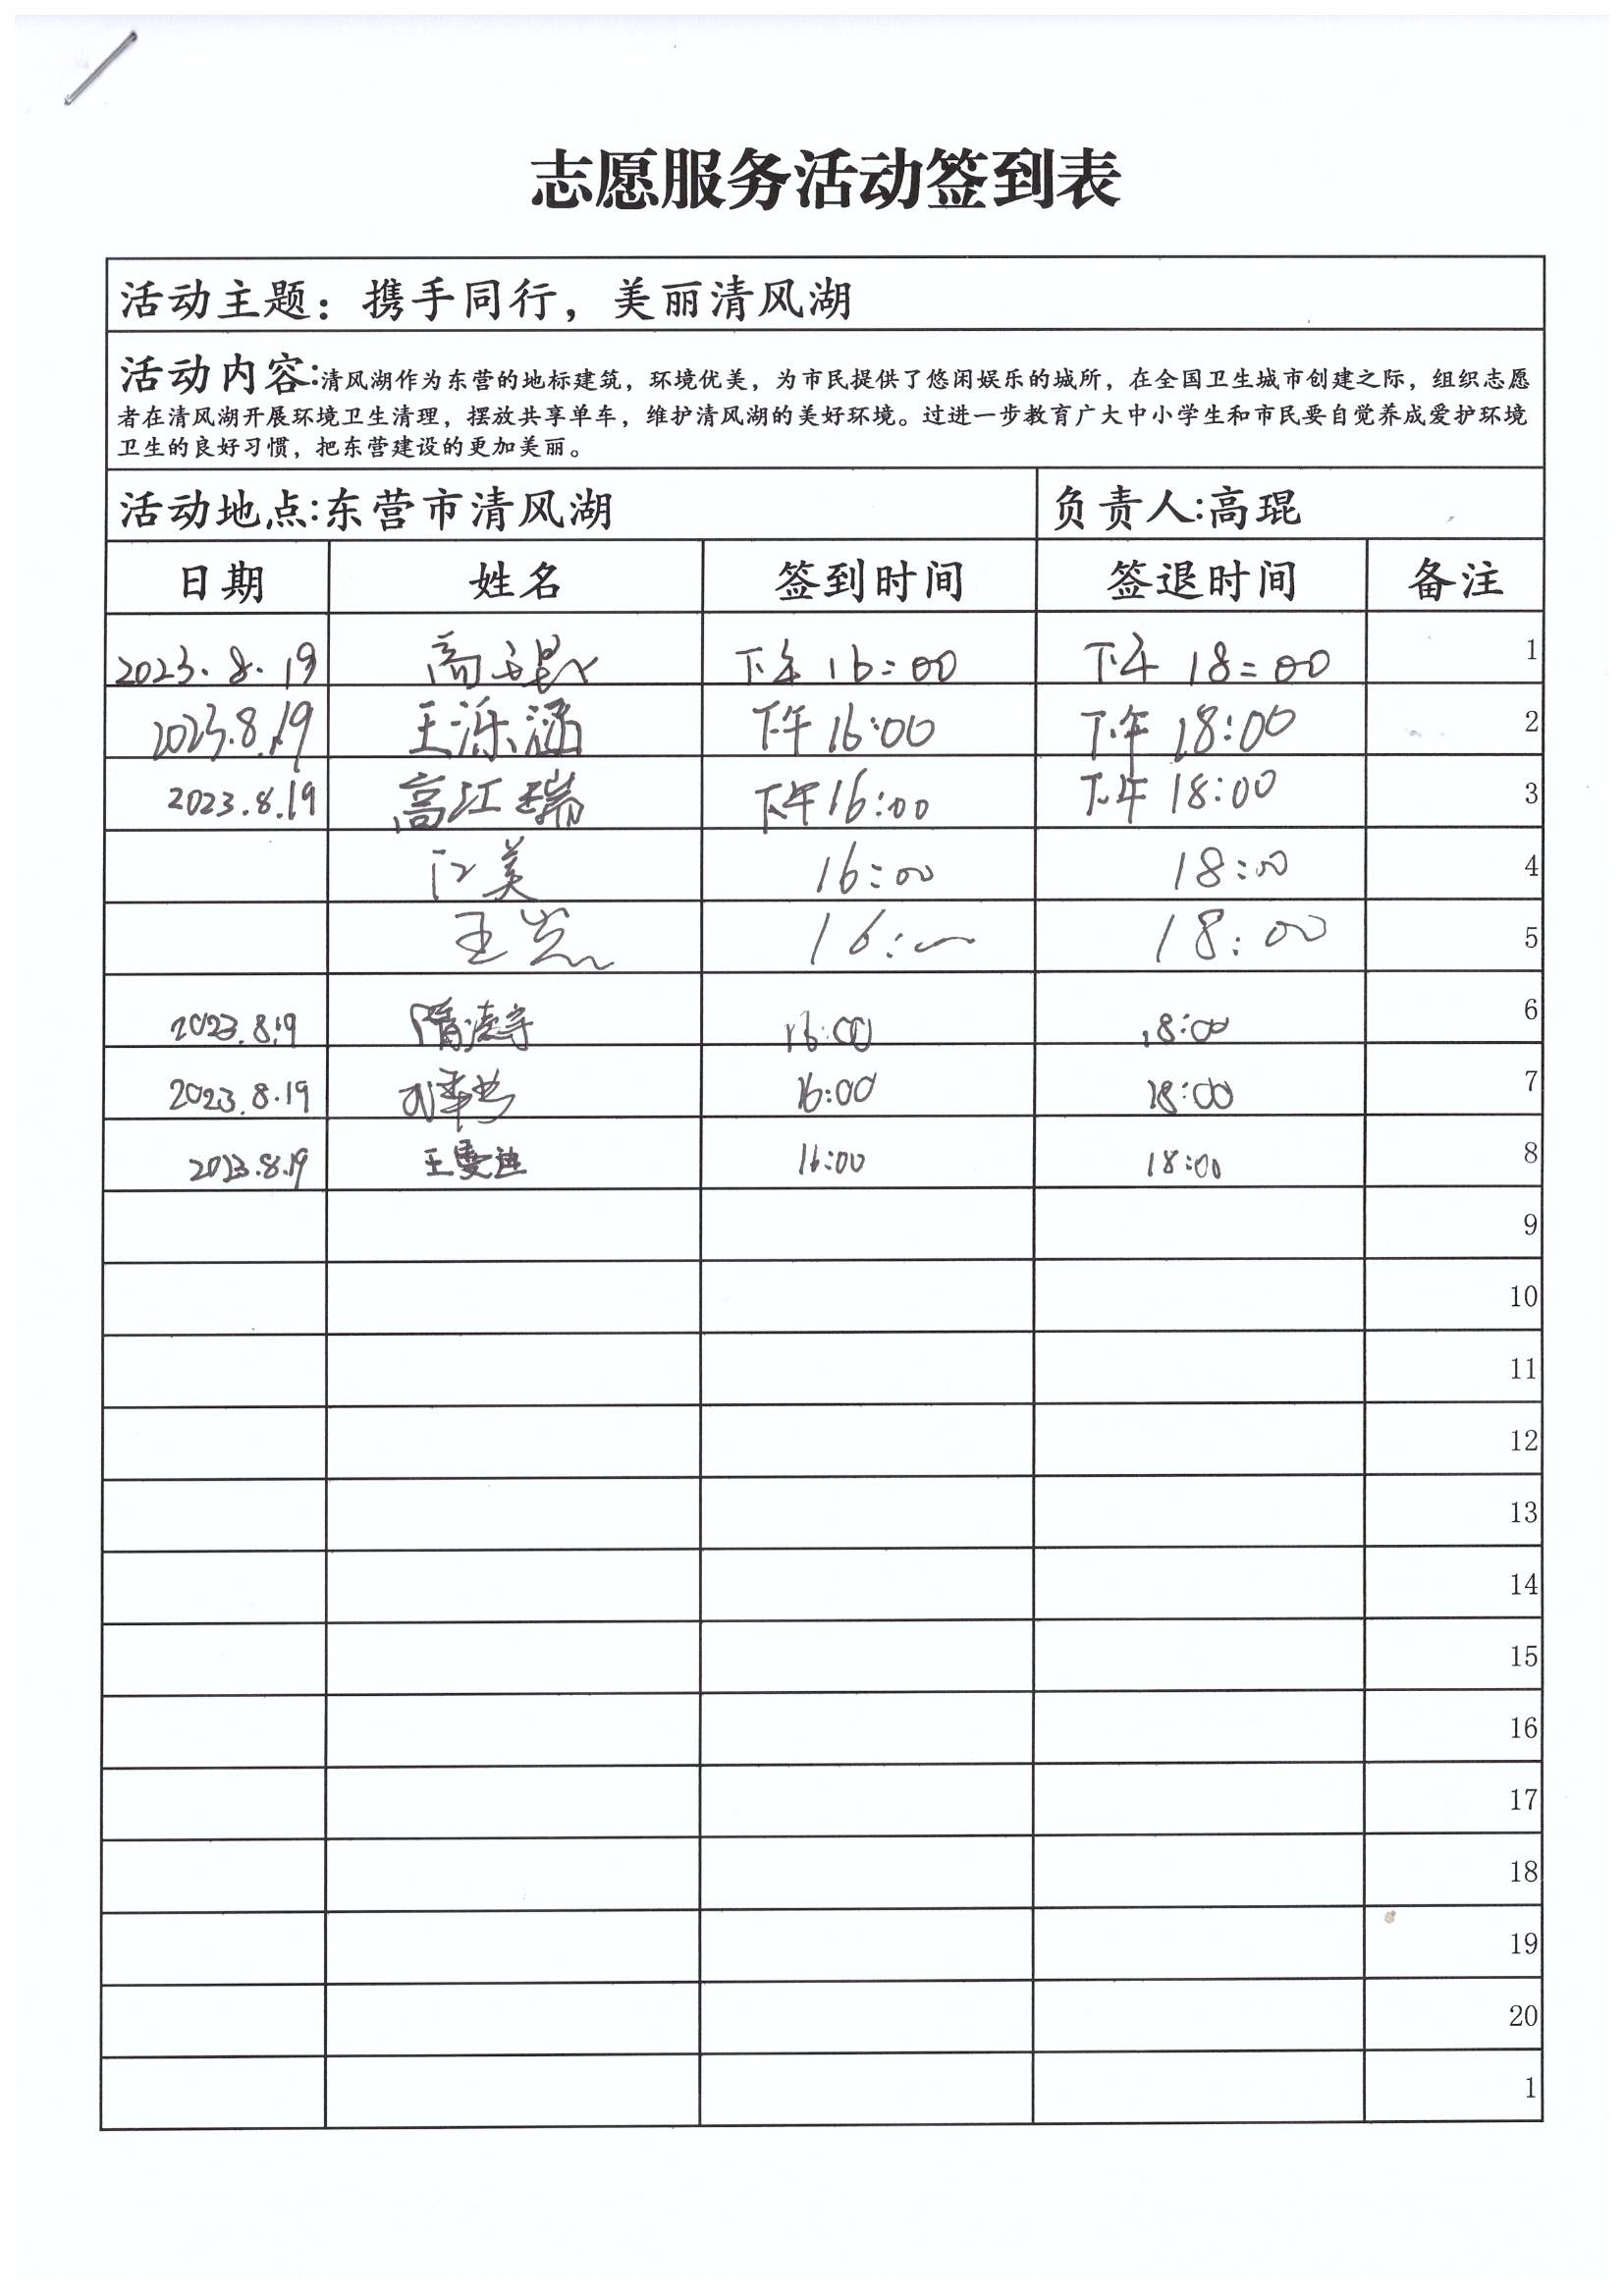 志愿服务活动签到表
活动主题：携手同行，美丽清风湖
活动内容:清风湖作为东营的地标建筑，环境优美，为市民提供了悠闲娱乐的城所，在全国卫生城市创建之际，组织志愿
者在清风湖开展环境卫生清理，摆放共享单车，维护清风湖的美好环境。过进一步教育广大中小学生和市民要自觉养成爱护环境
卫生的良好习惯，把东营建设的更加美丽。
活动地点:东营市清风湖 负责人:高琨
日期 姓名 签到时间 签退时间 备注
2023.8.19 高琨 下午16:00 下午18:00 1
2023.8.19 王泺涵 下午16:00 下午18:00 2
2023.8.19 高江瑞 下午16:00 下午18:00 3
江美 16:00 18:00 4
王 16: 18:00 5
2023.8.19 隋 16:00 18:00 6
2023.8.19 16:00 18:00 7
2023.8.19 王曼迪 16:00 18:00 8
9
10
11
12
13
14
15
16
17
18
19
20
1